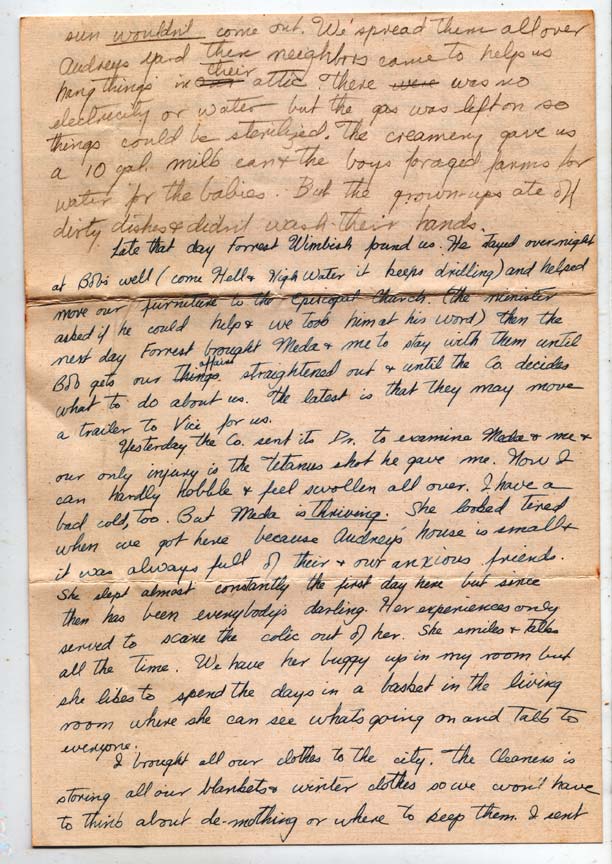 sun wouldn't come out. We spread them all over
Audreys yard then neighbors came to help us
hang things in their attic. There were was no
electricity or water but the gas was left on so
things could be sterilized. The creamery gave us
a 10 gal. milk can & the boys foraged farms for
water for the babies. But the grown-ups ate off
dirty dishes & didn't wash their hands.
Late that day Forrest Wimbish found us. He stayed over-night
at Bob's well (come Hell & High Water it keeps drilling) and helped
move our furniture to the Episcopal Church. (the minister
asked if he could help & we took him at his word) then the
next day Forrest brought Meda & me to stay with them until
Bob gets our things affairs straightened out & until the Co. decides
what to do about us. The latest is that they may move
a trailer to Vici for us.
Yesterday the Co. sent its Dr. to examine Meda & me &
our only injury is the Tetanus shot he gave me. Now I
can hardly hobble & feel swollen all over. I have a
bad cold, too. But Meda is thriving. She looked tired
when we got here because Audrey's house is small &
it was always full of their & our anxious friends.
She slept almost constantly the first day here but since
then has been everybody's darling. Her experiences only
served to scare the colic out of her. She smiles & talks
all the time. We have her buggy up in my room but
she likes to spend the days in a basket in the living
room where she can see whats going on and talk to
everyone.
I brought all our clothes to the city. The Cleaners is
storing all our blankets & winter clothes so we won't have
to think about de-mothing or where to keep them. I sent